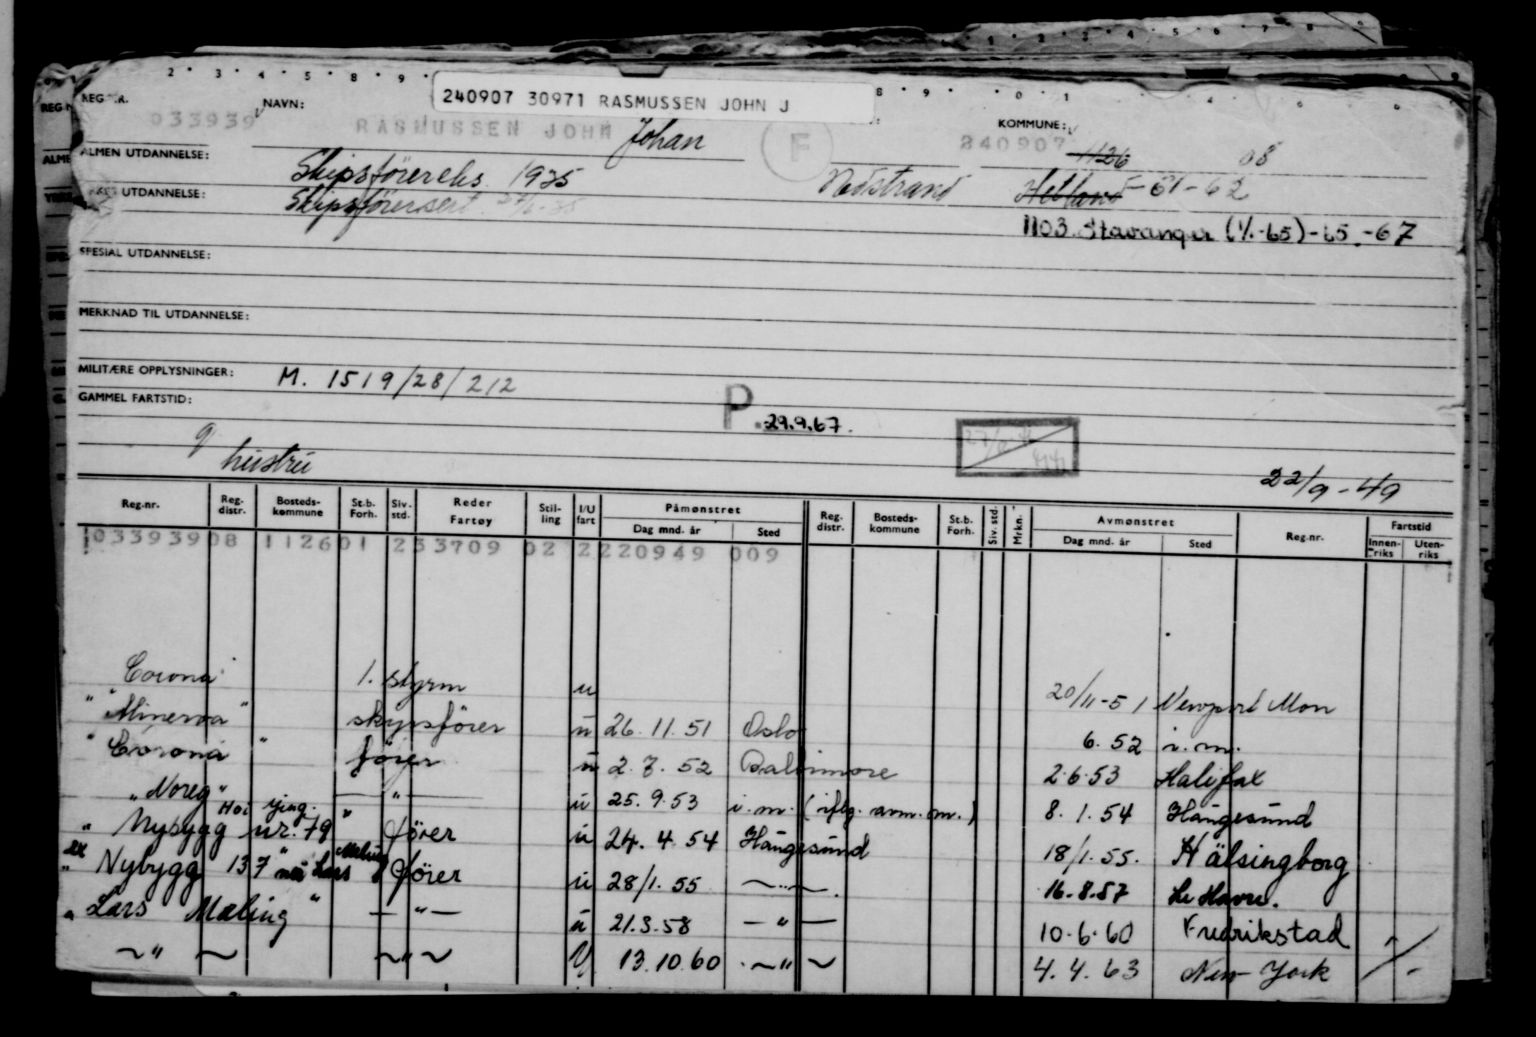 240907 30971 RASMUSSEN JOHN J
REG.NR. NAVN: KOMMUNE:
033939 RASMUSSEN JOHN Johan F 240907 1126 08
ALMEN UTDANNELSE: Skipsförereks. 1935 Nedstrand Helland - 61 - 62
UTDANNELSE: Skipsförersert.
1103. Stavanger (1/1.-65)-65.-67
SPESIAL UTDANNELSE:
MERKNAD TIL UTDANNELSE:
MILITÆRE OPPLYSNINGER: M. 1519/28/212
GAMMEL FARTSTID: P. 29.9.67.
g hustru
22/9-49
Reg.nr. Reg. distr. Bosteds-kommune St.b. Forh. Siv. std. Reder Fartøy Stil-ling I/U fart Påmønstret Dag mnd. år Sted Reg. distr. Bosteds-kommune St.b. Forh. Siv. std. Mrkn. Avmønstret Dag mnd. år Sted Reg.nr. Fartstid Innen-riks Uten-riks
033939 08 1126 01 2 33709 02 2 220949 009
Corona 1. styrm u 20/11-51 Newport Mon
"Minerva" skipsförer u 26.11.51 Oslo 6.52 i.m.
"Corona" förer u 2.7.52 Baltimore 2.6.53 Halifax
"Noreg" — " — u 25.9.53 i.m. (iflg. avm.m.) 8.1.54 Haugesund
" Nybygg nr. 79 " förer u 24.4.54 Haugesund 18/1.55. Hälsingborg
" Nybygg 137 " nå Lars Meling förer u 28/1.55 — " — 16.8.57 Le Havre.
" Lars Meling " — " — u 21.3.58 — " — 10.6.60 Fredrikstad
— " — — " — U 13.10.60 — " — 4.4.63 New York